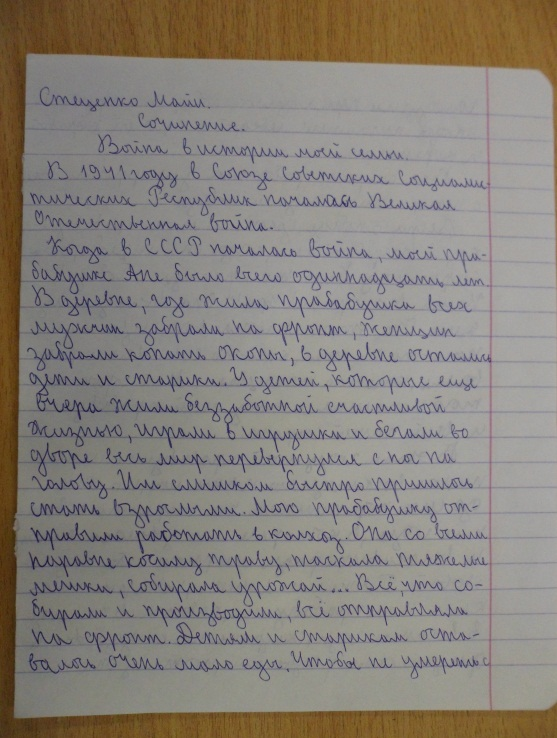 Стеценко Майи.
Сочинение.
Война в истории моей семьи.
В 1941 году в Союзе Советских Социалис-
тических Республик началась Великая
Отечественная война.
Когда в СССР началась война, моей пра-
бабушке Ане было всего одиннадцать лет.
В деревне, где жила прабабушка всех
мужчин забрали на фронт, женщин
забрали копать окопы, в деревне остались
дети и старики. У детей, которые еще
вчера жили беззаботной счастливой
жизнью, играли в игрушки и бегали во
дворе весь мир перевернулся с ног на
голову. Им слишком быстро пришлось
стать взрослыми. Мою прабабушку от-
правили работать в колхоз. Она со всеми
наравне косила траву, таскала тяжелые
мешки, собирала урожай... Всё, что со-
бирали и производили, всё отправляли
на фронт. Детям и старикам оста-
валось очень мало еды. Чтобы не умереть с